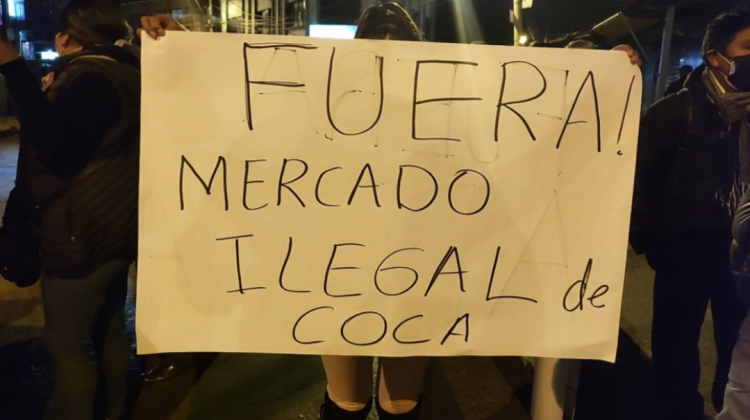 FUERA!
MERCADO
ILEGAL de
COCA